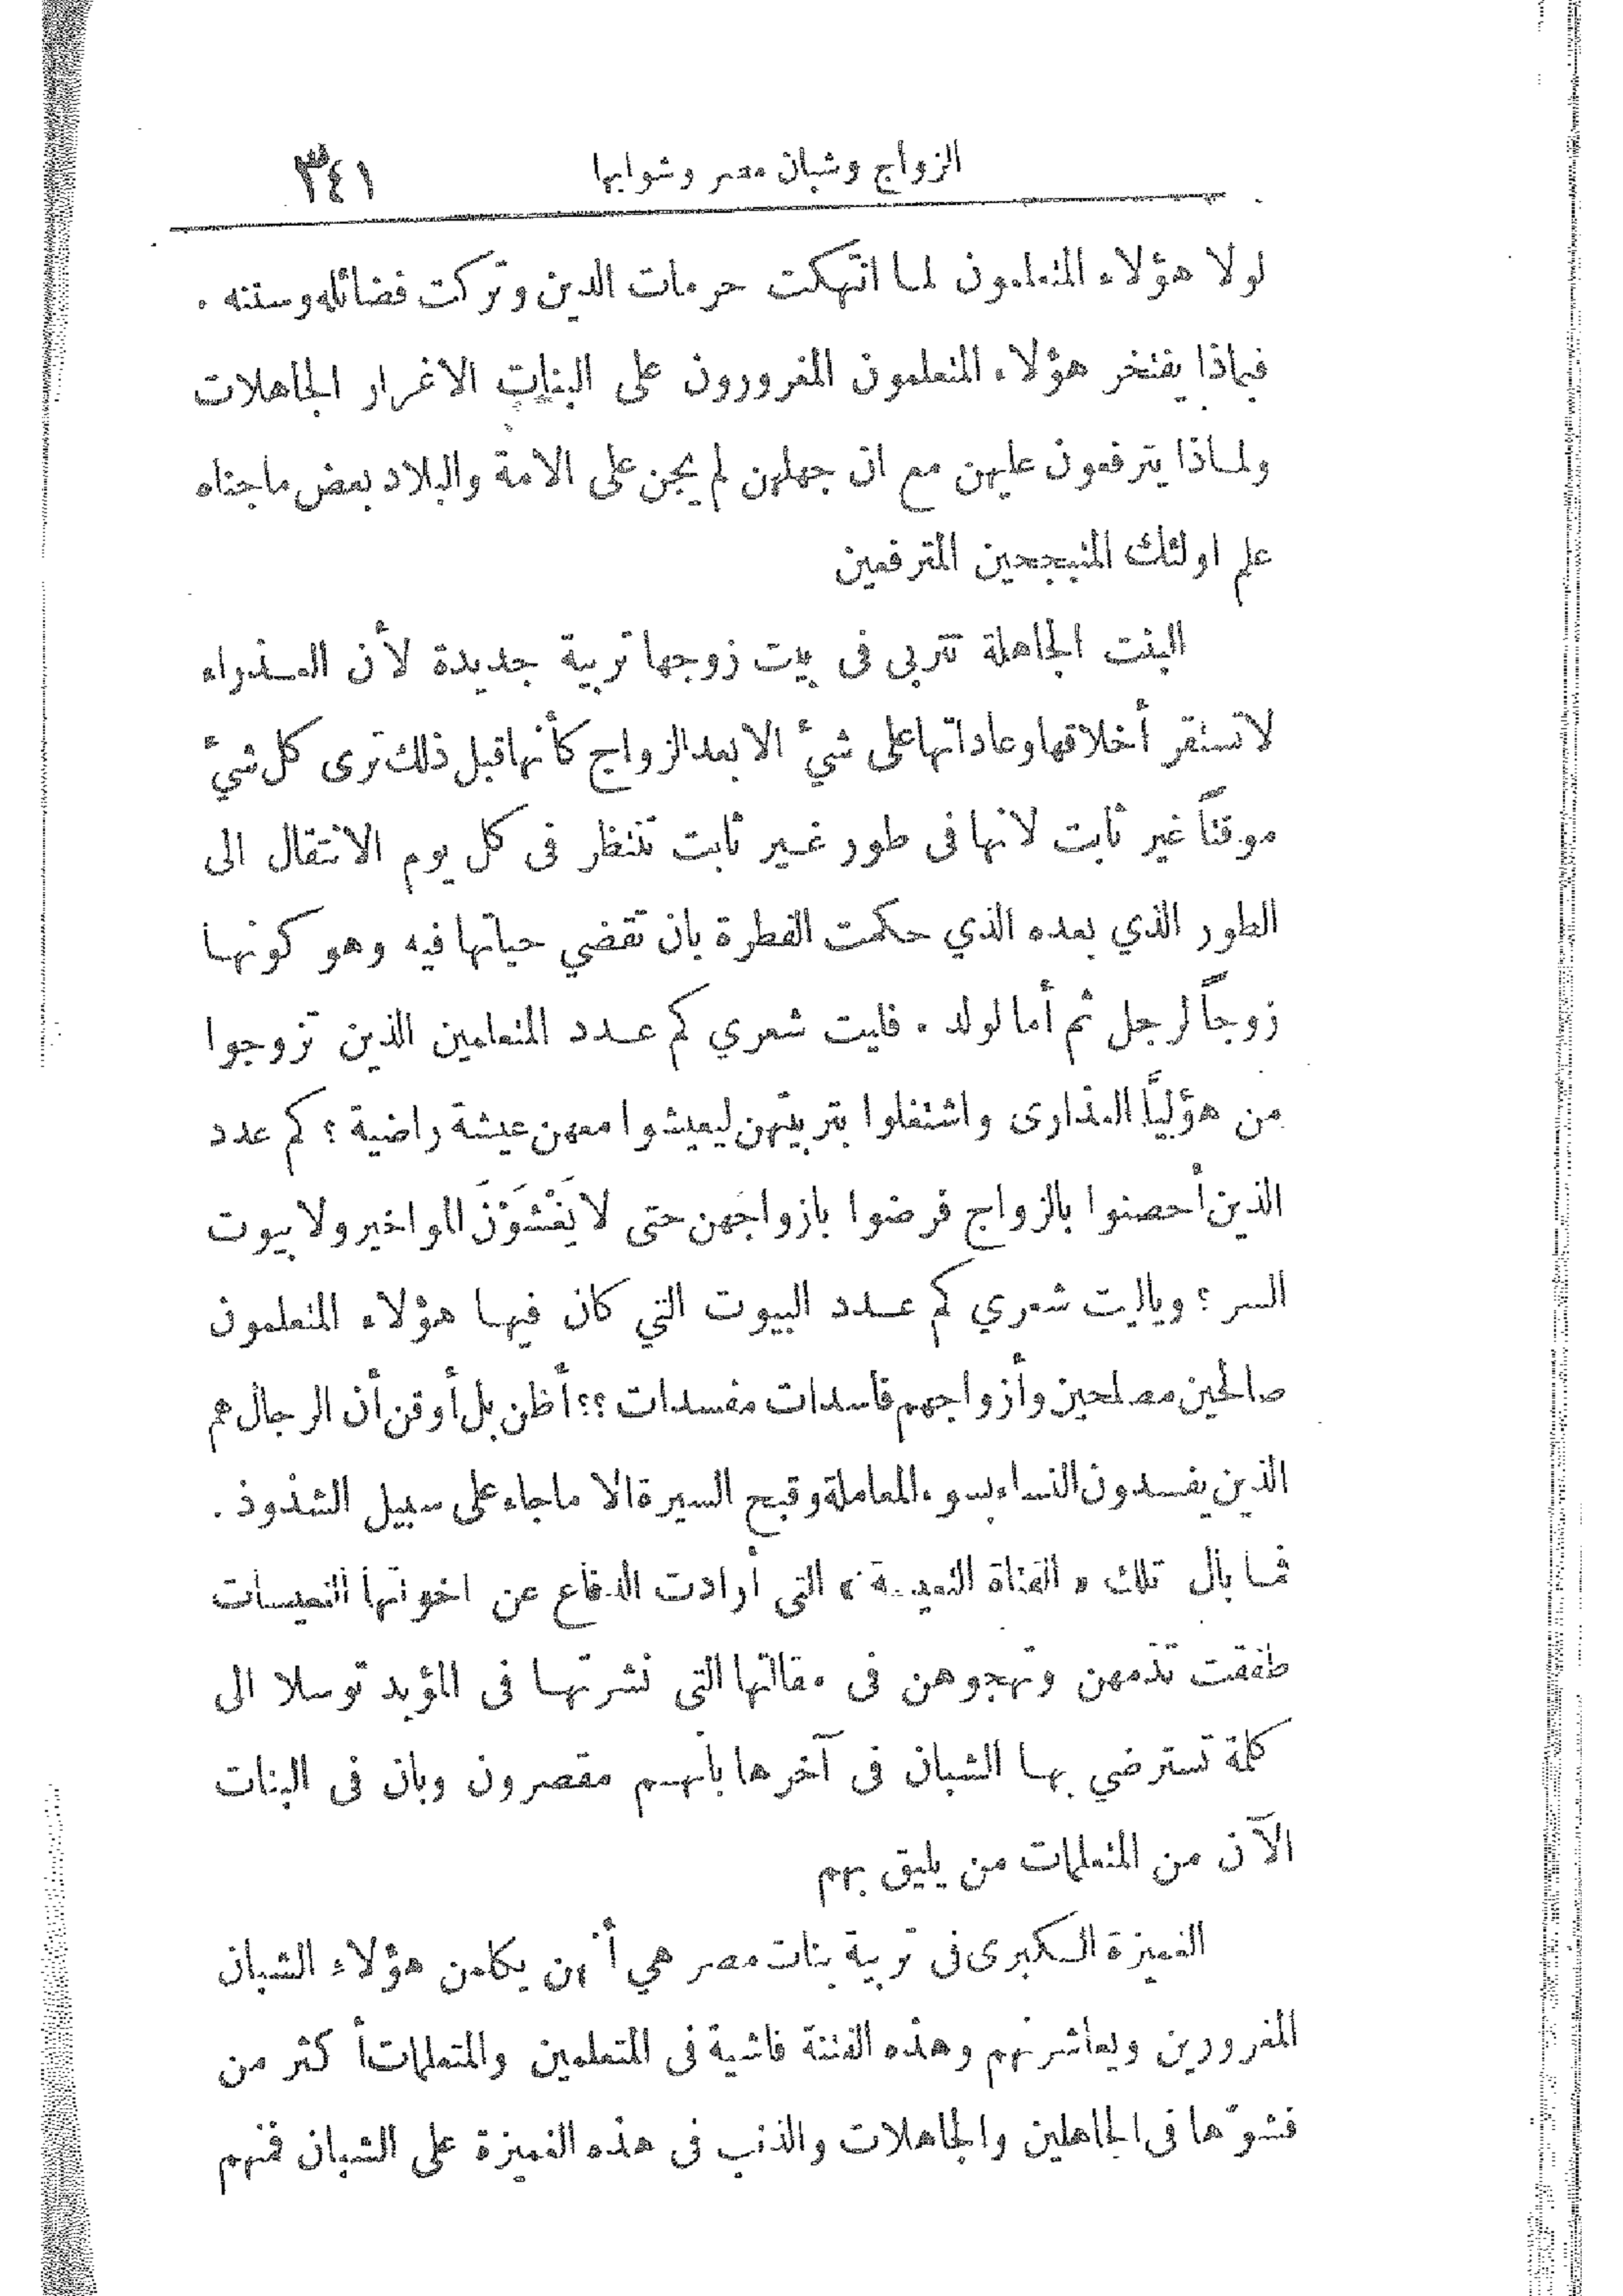 الزواج وشبان مصر وشوابها ٣٤١
لولا هؤلاء المتعلمون لما انتهكت حرمات الدين وتركت فضائله وسننه .
فبماذا يفتخر هؤلاء المتعلمون المغرورون على البنات الاغرار الجاهلات
ولماذا يترفعون عليهن مع ان جهلهن لم يجن على الامة والبلاد بعض ماجناه
علم اولئك المتبجحين المترفعين
البنت الجاهلة تتربى فى بيت زوجها تربية جديدة لأن العذراء
لا تستقر أخلاقها وعاداتها على شيءٍ الا بعد الزواج كأنها قبل ذلك ترى كل شيءٍ
موقتاً غير ثابت لانها فى طور غير ثابت تنتظر فى كل يوم الانتقال الى
الطور الذي بعده الذي حكمت الفطرة بان تقضي حياتها فيه وهو كونها
زوجاً لرجل ثم أما لولد . فليت شعري كم عدد المتعلمين الذين تزوجوا
من هؤليَّا العذارى واشتغلوا بتربيتهن ليعيشوا معهن عيشة راضية ؟ كم عدد
الذين أحصنوا بالزواج فرضوا بازواجهن حتى لا يَغْشَوْنَ المواخير ولا بيوت
السر ؟ وياليت شعري كم عدد البيوت التي كان فيها هؤلاء المتعلمون
صالحين مصلحين وأزواجهم فاسدات مفسدات ؟؟ أظن بل أوقن أن الرجال هم
الذين يفسدون النساء بسوء المعاملة وقبح السيرة الا ماجاء على سبيل الشذوذ .
فما بال تلك « الفتاة التعيسة » التى أرادت الدفاع عن اخوتها التعيسات
طفقت تذمهن وتهجوهن فى مقالتها التى نشرتها فى المؤيد توسلا الى
كلمة تسترضي بها الشبان فى آخرها بأنهم مقصرون وبان فى البنات
الآن من المتعلمات من يليق بهم
الغميزة الكبرى فى تربية بنات مصر هي أنهن يكلمن هؤلاء الشبان
المغرورين ويعاشرنهم وهذه الفتنة فاشية فى المتعلمين والمتعلمات أكثر من
فشوّها فى الجاهلين والجاهلات والذنب فى هذه الغميزة على الشبان فمنهم